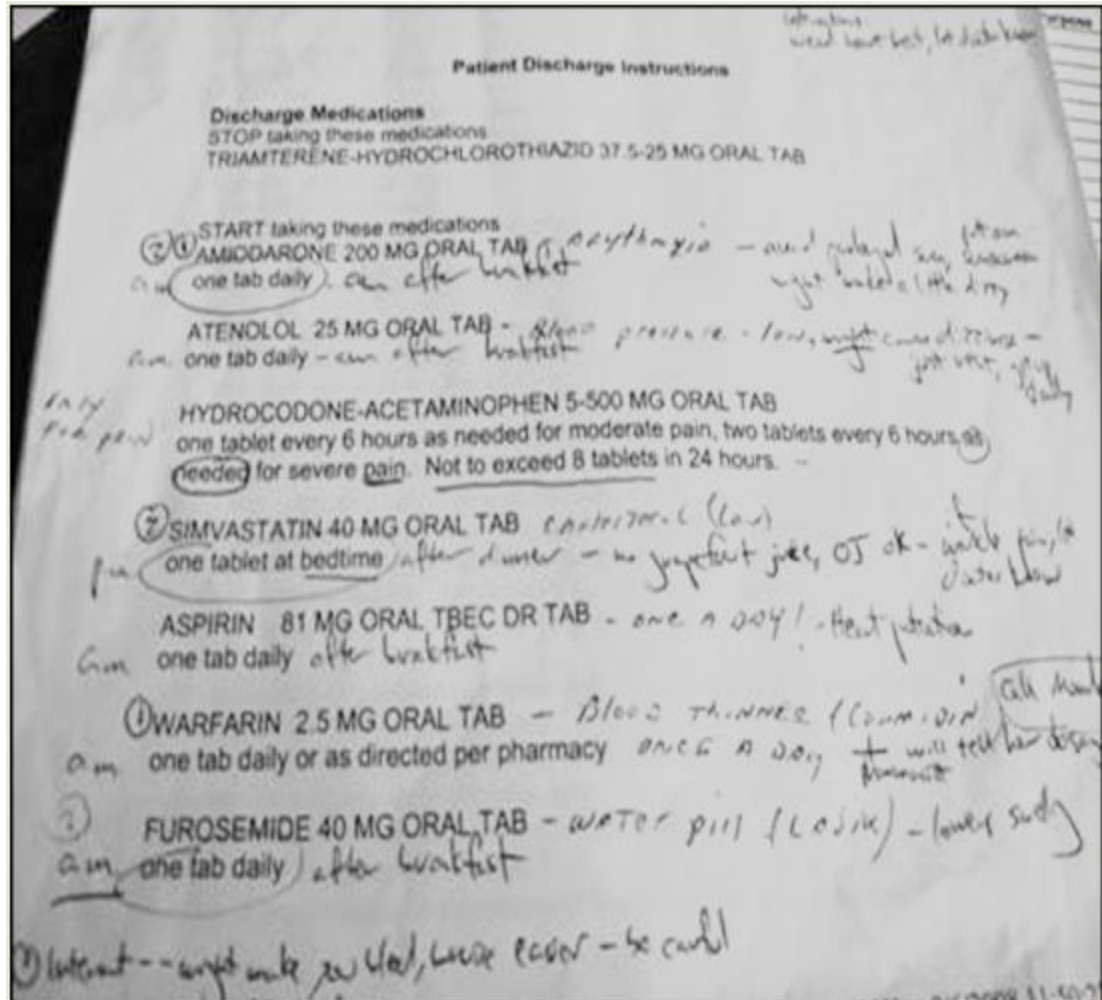 Interactions:
Patient Discharge Instructions
Discharge Medications
STOP taking these medications
TRIAMTERENE-HYDROCHLOROTHIAZID 37.5-25 MG ORAL TAB
START taking these medications
② ① AMIODARONE 200 MG ORAL TAB - arythmia - avoid prolonged sun, sunscreen
am one tab daily. am after breakfast might make a little dizzy
ATENOLOL 25 MG ORAL TAB - Blood pressure - low, might cause dizziness -
am one tab daily - am after breakfast just
daily
only
for pain
HYDROCODONE-ACETAMINOPHEN 5-500 MG ORAL TAB
one tablet every 6 hours as needed for moderate pain, two tablets every 6 hours as
needed for severe pain. Not to exceed 8 tablets in 24 hours.
② SIMVASTATIN 40 MG ORAL TAB (Low)
pm one tablet at bedtime after dinner - no grapefruit juice, OJ ok - muscle pain, let
ASPIRIN 81 MG ORAL TBEC DR TAB - ONE A DAY! - Heart
am one tab daily after breakfast
① WARFARIN 2.5 MG ORAL TAB - Blood THINNER Call
am one tab daily or as directed per pharmacy ONCE A DAY + will tell her
② FUROSEMIDE 40 MG ORAL TAB - WATER pill (Lasix) - lowers
am one tab daily after breakfast
① Interact -- might make you bleed, bruise easier - be careful